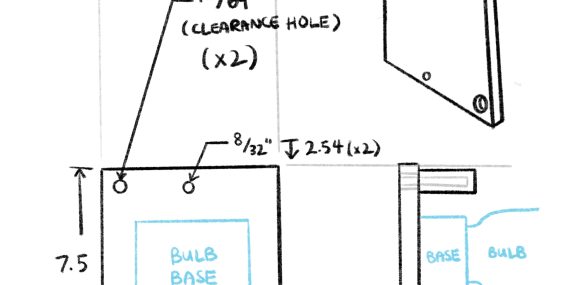 (CLEARANCE HOLE)
(x2)
8/32" ↧ 2.54 (x2)
7.5
BULB
BASE
BASE
BULB